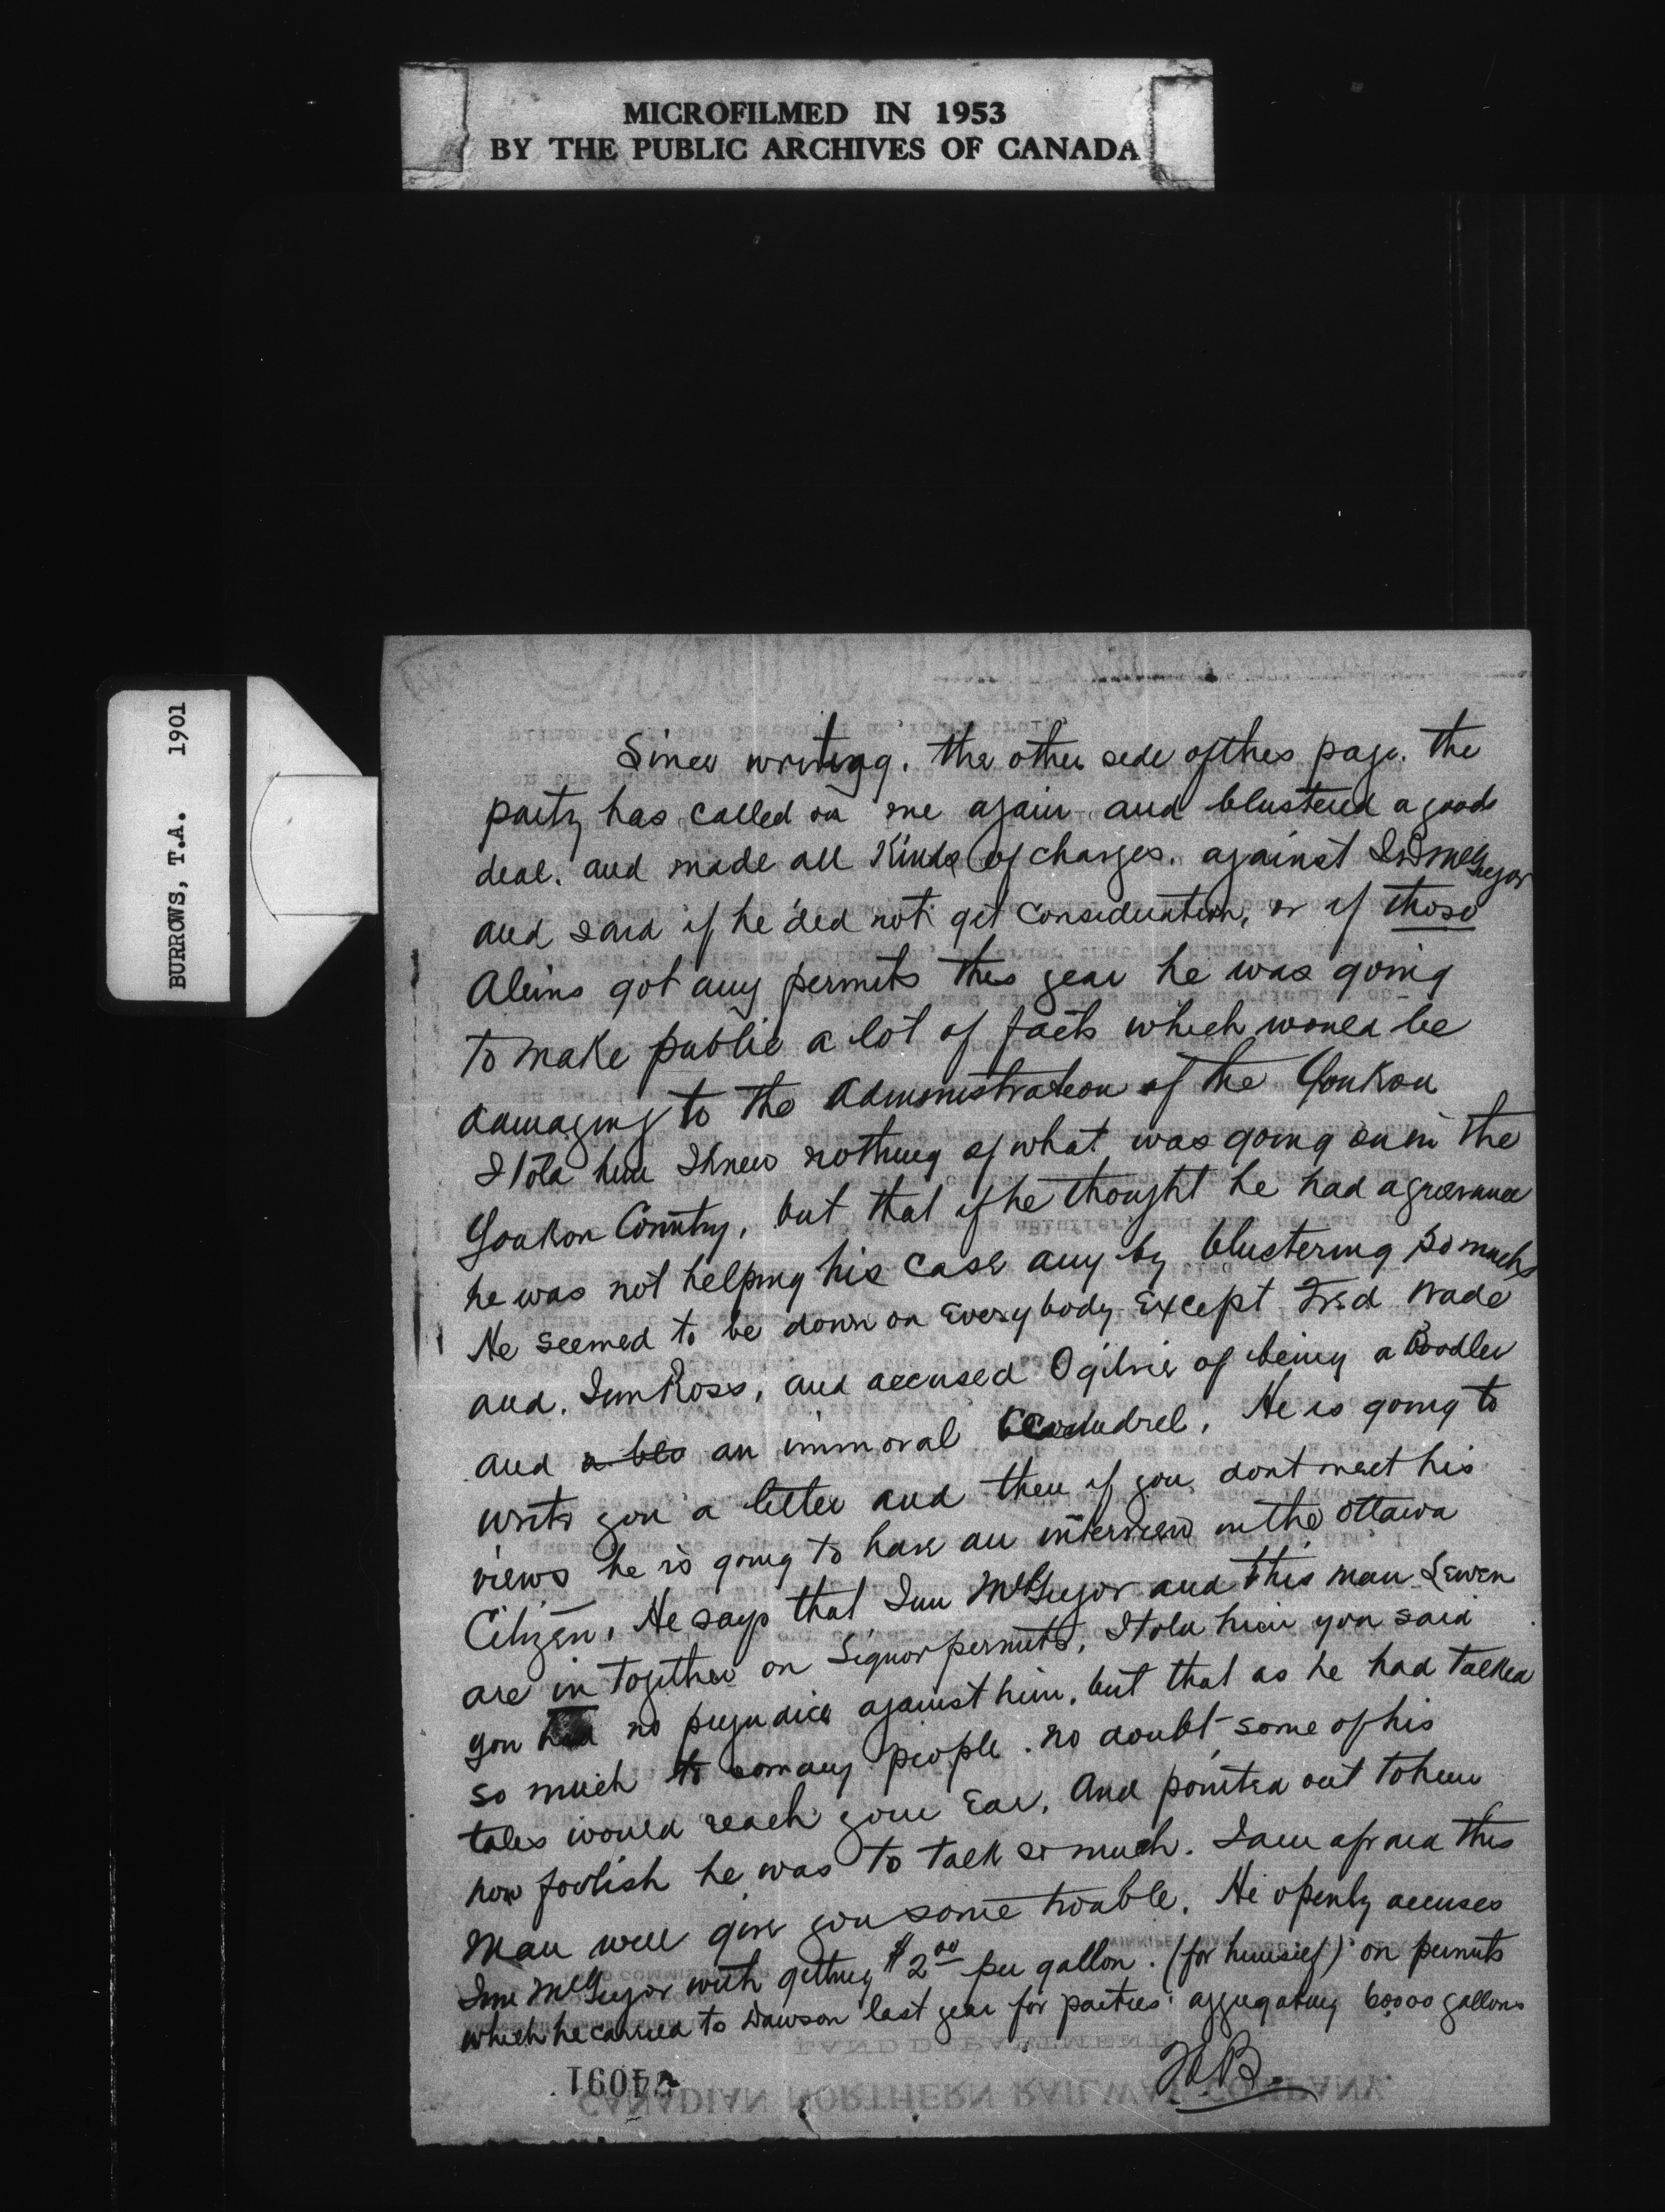 MICROFILMED IN 1953
BY THE PUBLIC ARCHIVES OF CANADA
BURROWS, T.A. 1901
Since writing, the other side of this page. the
party has called on me again and blustered a good
deal. and made all Kinds of charges. against McGregor
and said if he did not get consideration, or if those
Aliens got any permits this year he was going
to make public a lot of facts which would be
damaging to the administration of the Youkon
I told him I knew nothing of what was going on in the
Youkon Country, but that if he thought he had a grievance
he was not helping his case any by blustering so much
He seemed to be down on Everybody Except Fred Wade
and. Jim Ross, and accused Ogilvie of being a Boodler
and an immoral scoundrel. He is going to
write you a letter and then if you dont meet his
views he is going to have an interview in the Ottawa
Citizen. He says that Jim McGregor and this man
are in together on Liquor permits. I told him you said
you had no prejudice against him, but that as he had talked
so much to so many people. no doubt some of his
tales would reach your Ear. And pointed out to him
how foolish he was to talk so much. I am afraid this
Man will give you some trouble. He openly accuses
Jim McGregor with getting $2 00 per gallon. (for himself) on permits
which he carried to Dawson last year for parties aggregating 60000 gallons
T.B.
LAND DEPARTMENT
CANADIAN NORTHERN RAILWAY COMPANY.